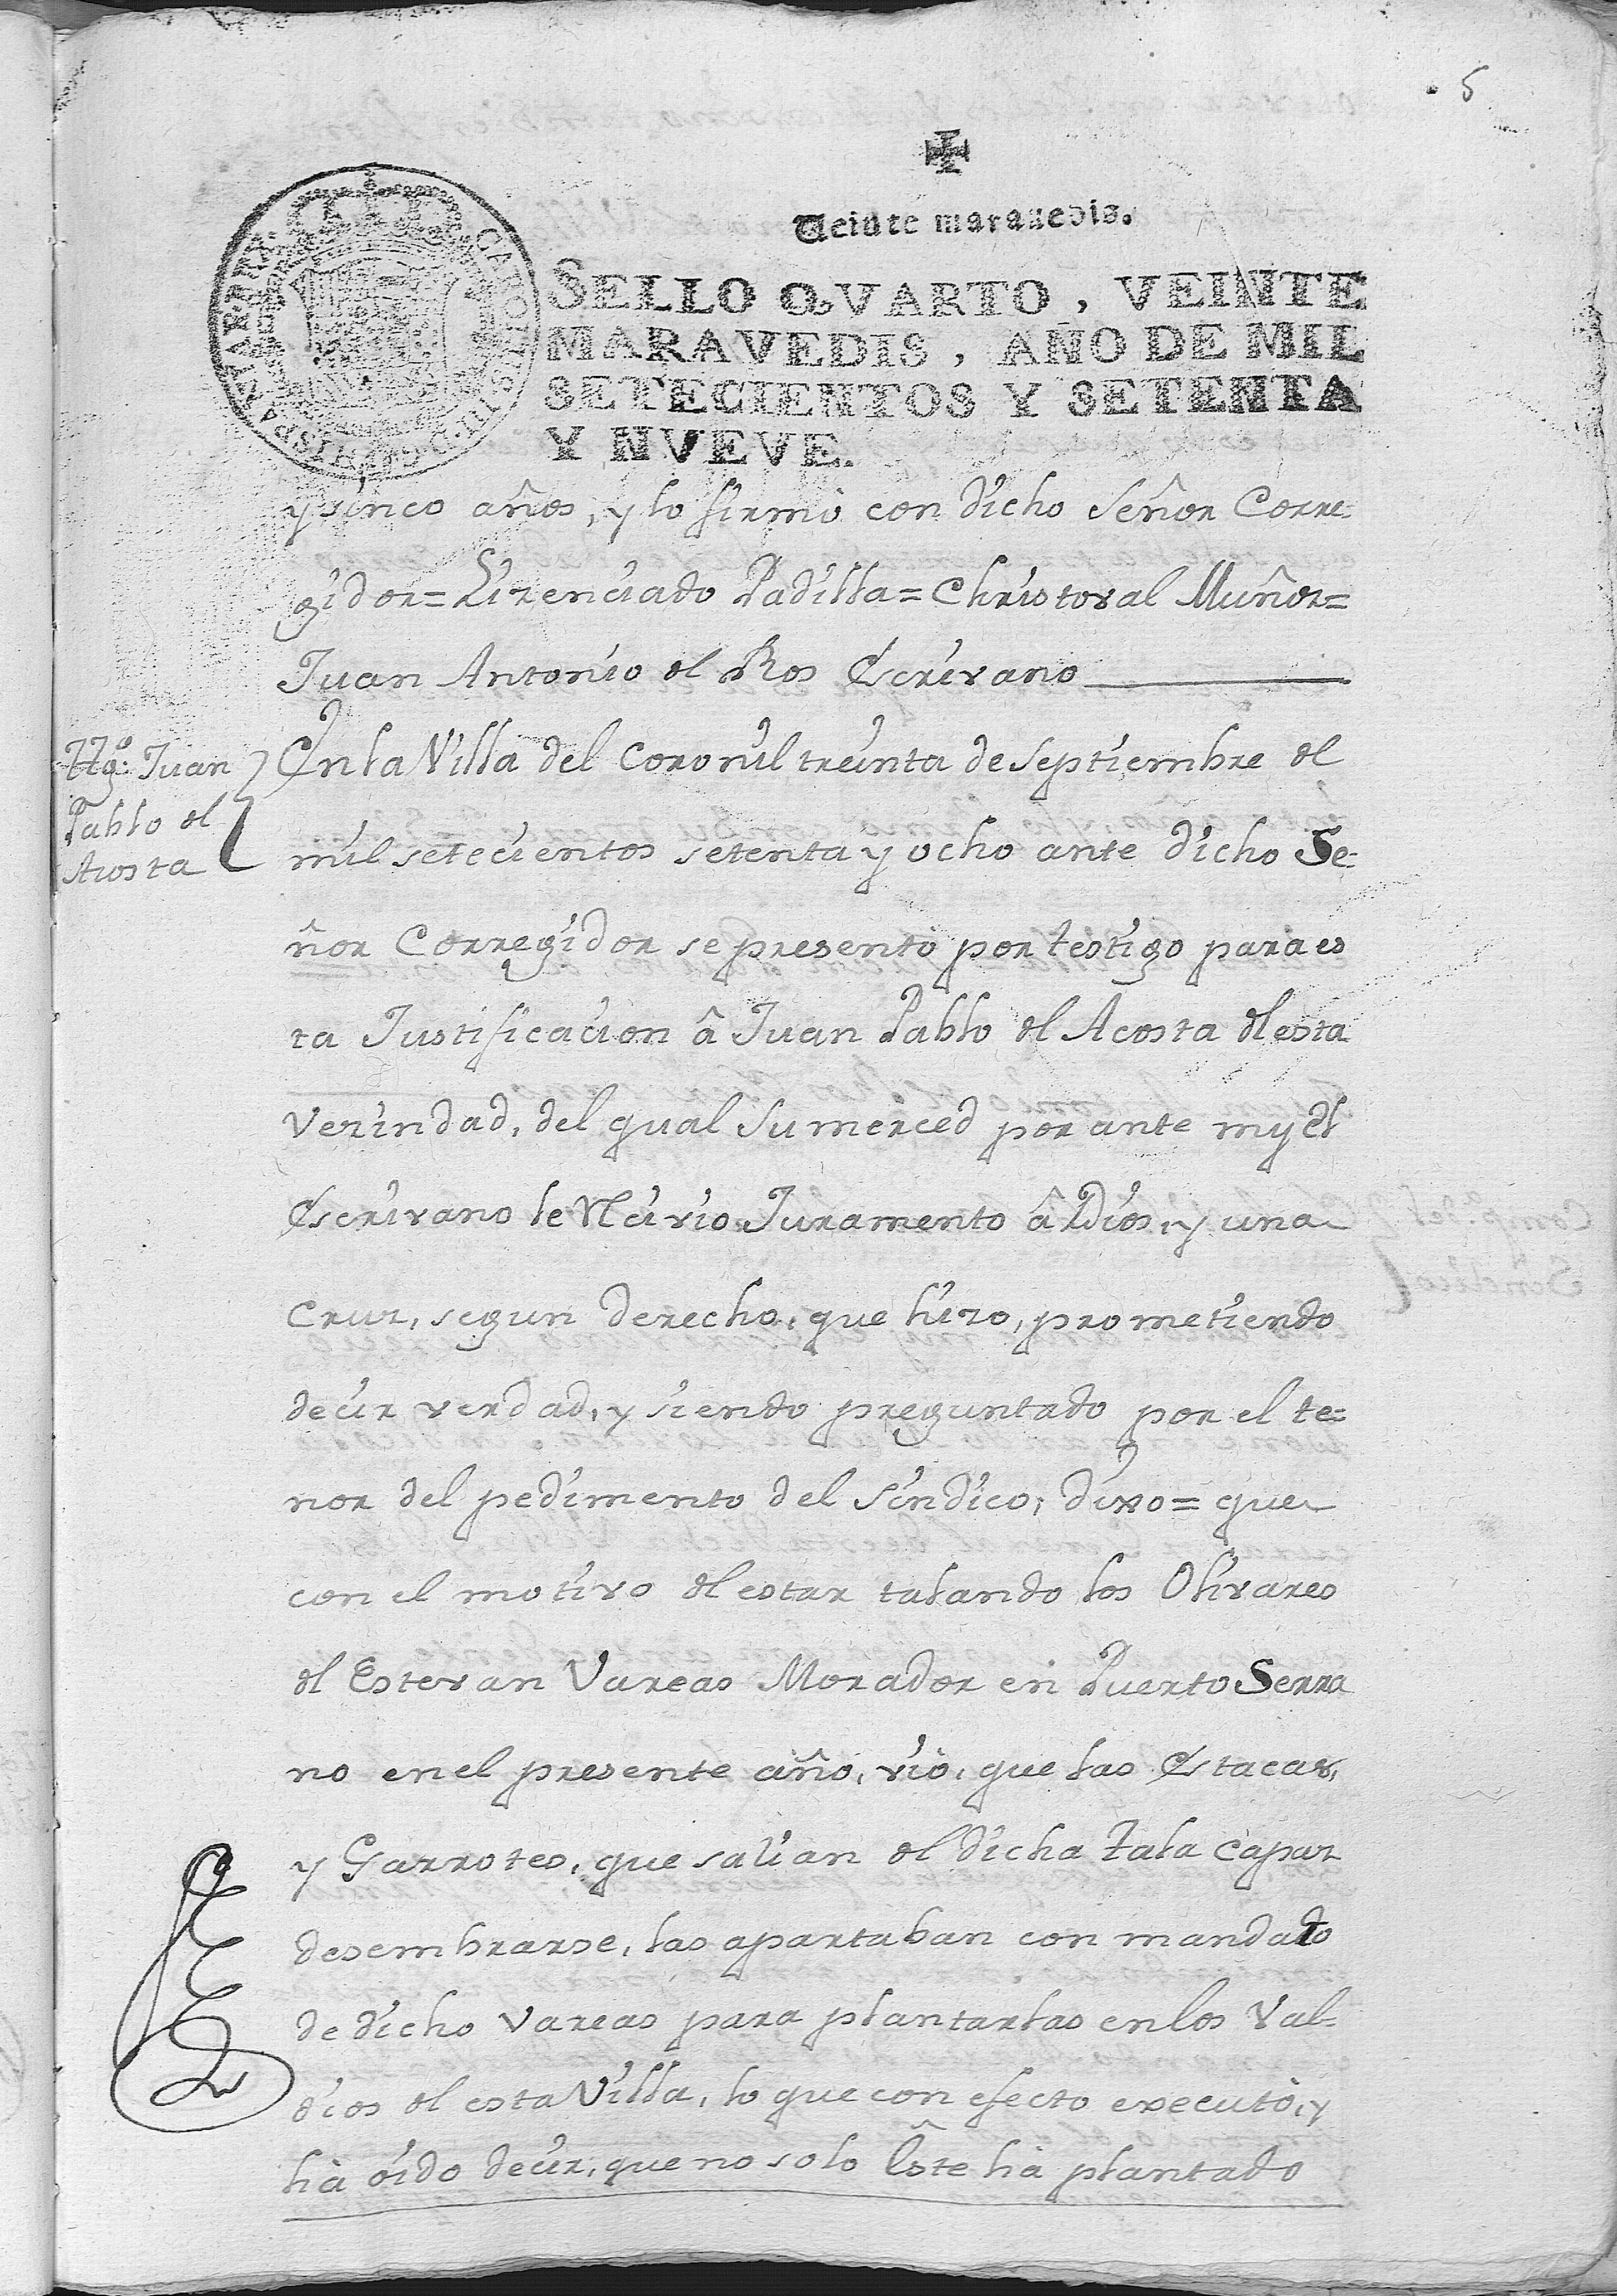 5
Veinte maravedis.
SELLO QVARTO, VEINTE
MARAVEDIS, AÑO DE MIL
SETECIENTOS Y SETENTA
Y NVEVE.
y sinco años, y lo firmò con dicho Señor Corre-
gidor = Lizenciado Padilla = Christoval Muñoz =
Juan Antonio de Ros Escrivano
Ttgº: Juan
Pablo de
Acosta
En la Villa del Coronil treinta de septiembre de
mil setecientos setenta y ocho ante dicho Se-
ñor Corregidor se presentò por testigo para es
ta Justificacion â Juan Pablo de Acosta de esta
Vezindad, del qual Su merced por ante my el
Escrivano le Recivio Juramento â Dios, y una
Cruz, segun derecho, que hizo, prometiendo
decir verdad, y siendo preguntado por el te-
nor del pedimento del Sindico, dixo = que
con el motivo de estar talando los Olivares
de Estevan Vareas Morador en Puerto Serra
no en el presente año, viò, que las Estacas,
y Garrotes, que salian de dicha tala capaz
desembrarse, las apartaban con mandato
de dicho Vareas para plantarlas en los Val-
dios de esta Villa, lo que con efecto executò, y
hà oido decir, que no solo Êste hà plantado